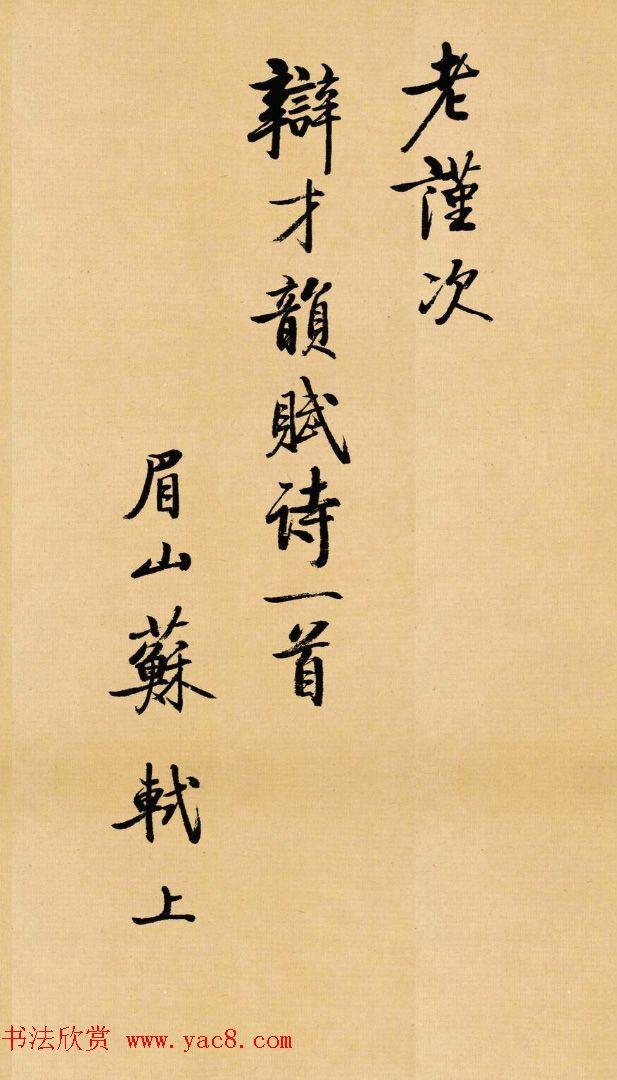 老謹次
辯才韻賦詩一首
眉山蘇軾上
书法欣赏 www.yac8.com